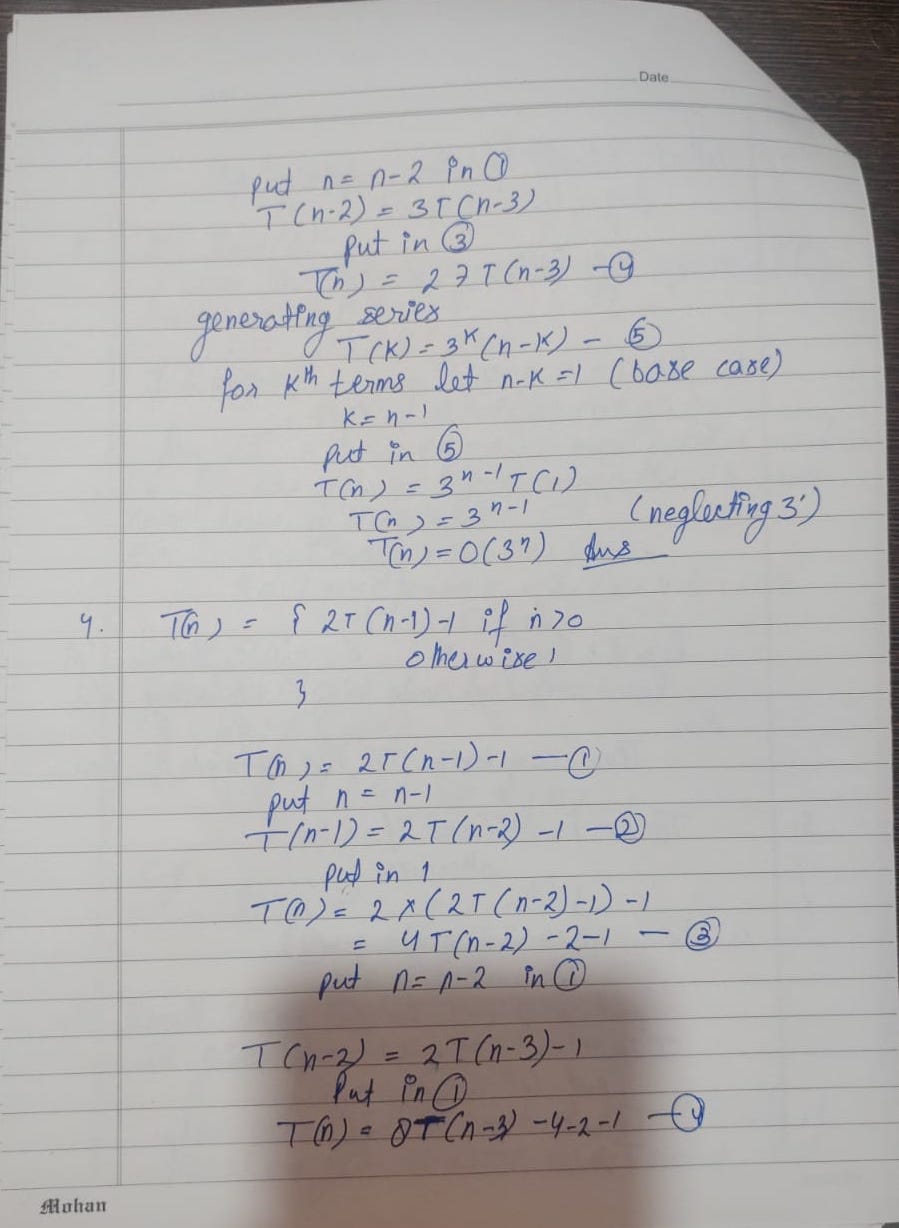 Date
put n = n-2 in ①
T(n-2) = 3T(n-3)
put in ③
T(n) = 27T(n-3) - ④
generating series
T(k) = 3ᵏ(n-k) - ⑤
for kᵗʰ terms let n-k=1 (base case)
k = n-1
put in ⑤
T(n) = 3ⁿ⁻¹ T(1)
T(n) = 3ⁿ⁻¹ (neglecting 3')
T(n) = O(3ⁿ) Ans
4. T(n) = { 2T(n-1)-1 if n>0
otherwise 1
}
T(n) = 2T(n-1)-1 - ①
put n = n-1
T(n-1) = 2T(n-2) -1 - ②
put in 1
T(n) = 2×(2T(n-2)-1) -1
= 4T(n-2) -2-1 - ③
put n = n-2 in ①
T(n-2) = 2T(n-3)-1
Put in ①
T(n) = 8T(n-3) -4-2-1 - ④
Mohan